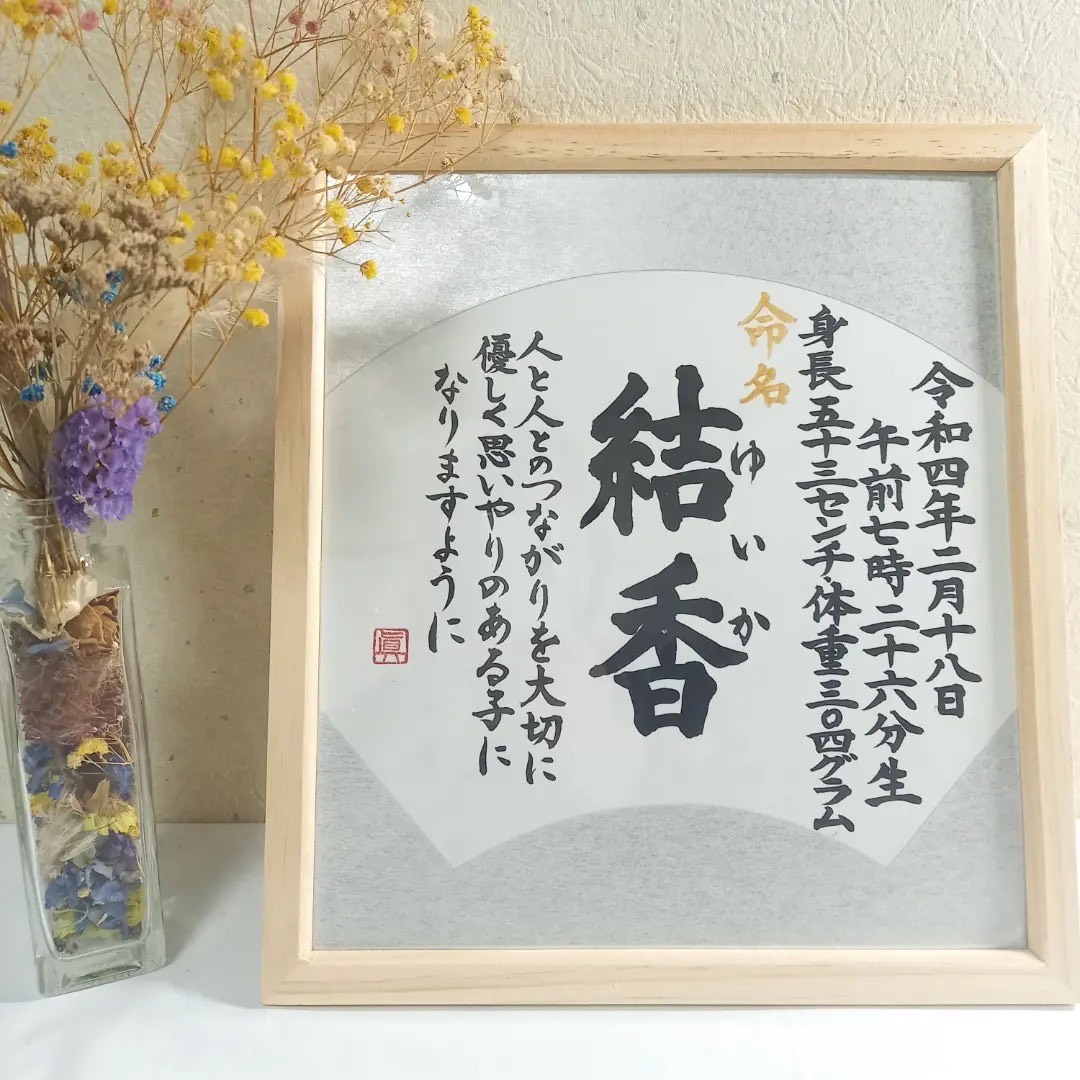 令和四年二月十八日
午前七時二十六分生
身長五十三センチ・体重三〇四グラム
命名
結香
ゆいか
人と人とのつながりを大切に
優しく思いやりのある子に
なりますように